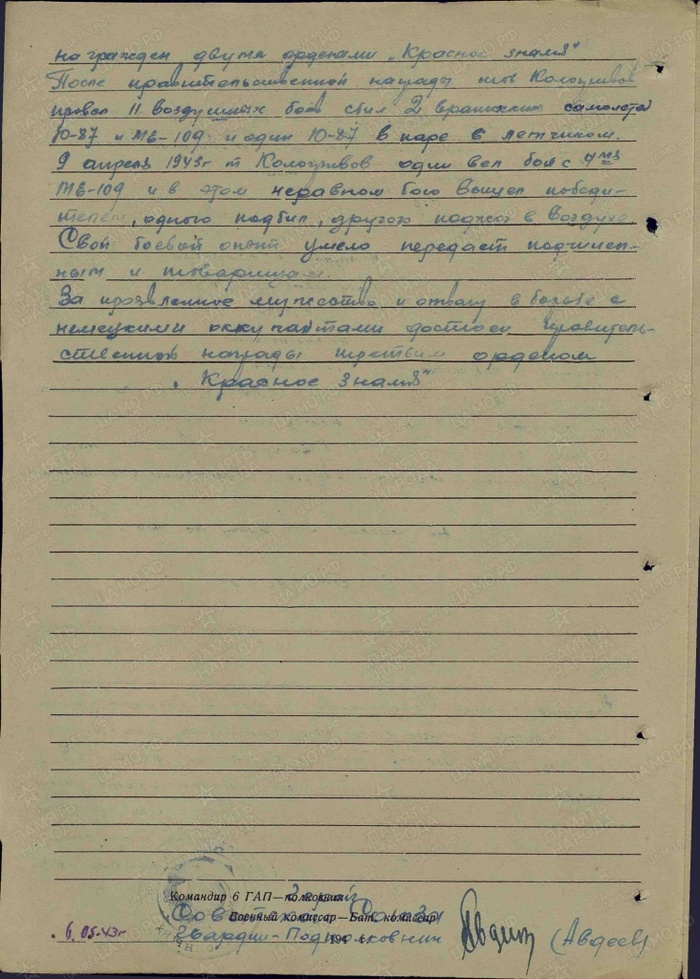 награжден двумя орденами „Красное знамя"
После правительственной награды тов Колодливов
провел 11 воздушных боев сбил 2 вражеских самолета
Ю-87 и МЕ-109 и один Ю-87 в паре с летчиком.
9 апреля 1943г т вел бой с 4мя
МЕ-109 и в этом неравном бою вышел победи-
телем, одного подбил, другого поджог в воздухе.
Свой боевой опыт умело передает подчинен-
ным и товарищам.
За проявленное мужество и отвагу в борьбе с
немецкими оккупантами достоен правитель-
ственной награды третьим орденом
„Красное знамя"
Командир 6 ГАП—полковник
Военный комиссар—Бат. комиссар
Гвардии-Подполковник (Авдеев)
6.05.43г 194 г.